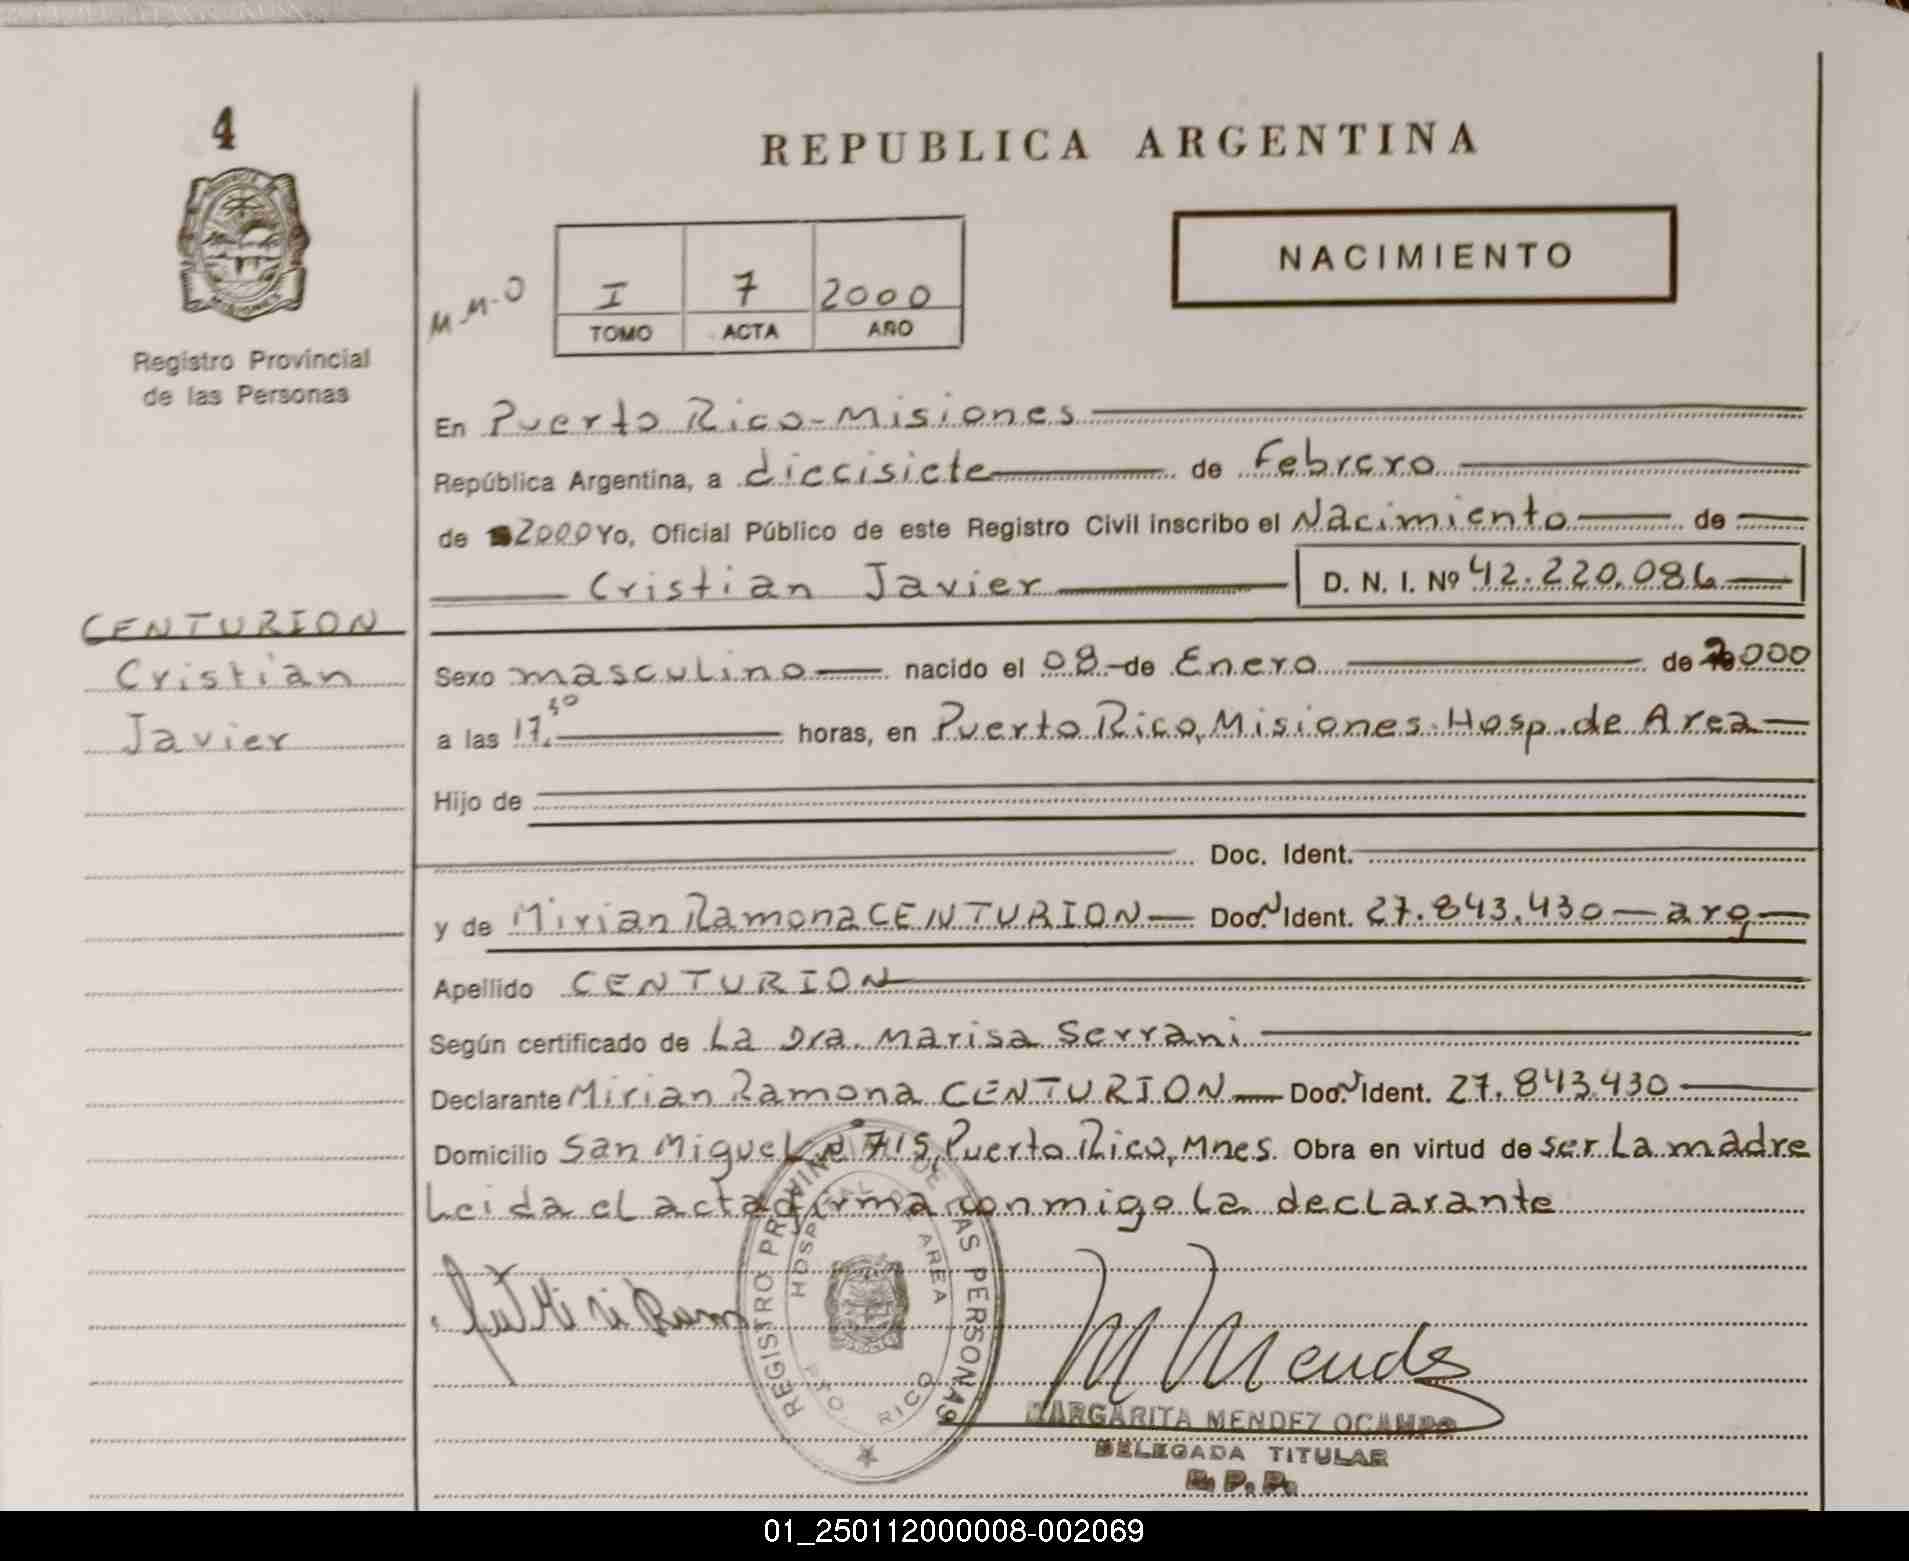 4
REPUBLICA ARGENTINA
NACIMIENTO
M.M.O
I 7 2000
TOMO ACTA AÑO
Registro Provincial
de las Personas
En Puerto Rico-Misiones
República Argentina, a diecisiete de Febrero
de 2000 Yo, Oficial Público de este Registro Civil inscribo el Nacimiento de
Cristian Javier D. N. I. Nº 42.220.086
CENTURION
Cristian
Javier
Sexo masculino nacido el 08 de Enero de 2000
a las 17.30 horas, en Puerto Rico, Misiones. Hosp. de Area
Hijo de
Doc. Ident.
y de Mirian Ramona CENTURION Doc. Ident. 27.843.430 - arg
Apellido CENTURION
Según certificado de La Dra. Marisa Serrani
Declarante Mirian Ramona CENTURION Doc. Ident. 27.843.430
Domicilio San Miguel 715, Puerto Rico, Mnes. Obra en virtud de ser La madre
Leida el acta firma conmigo la declarante
REGISTRO PROVINCIAL DE LAS PERSONAS
HOSPITAL DE AREA
PTO. RICO
M Mendez
MARGARITA MENDEZ OCAMPO
DELEGADA TITULAR
R. P. P.
01_250112000008-002069